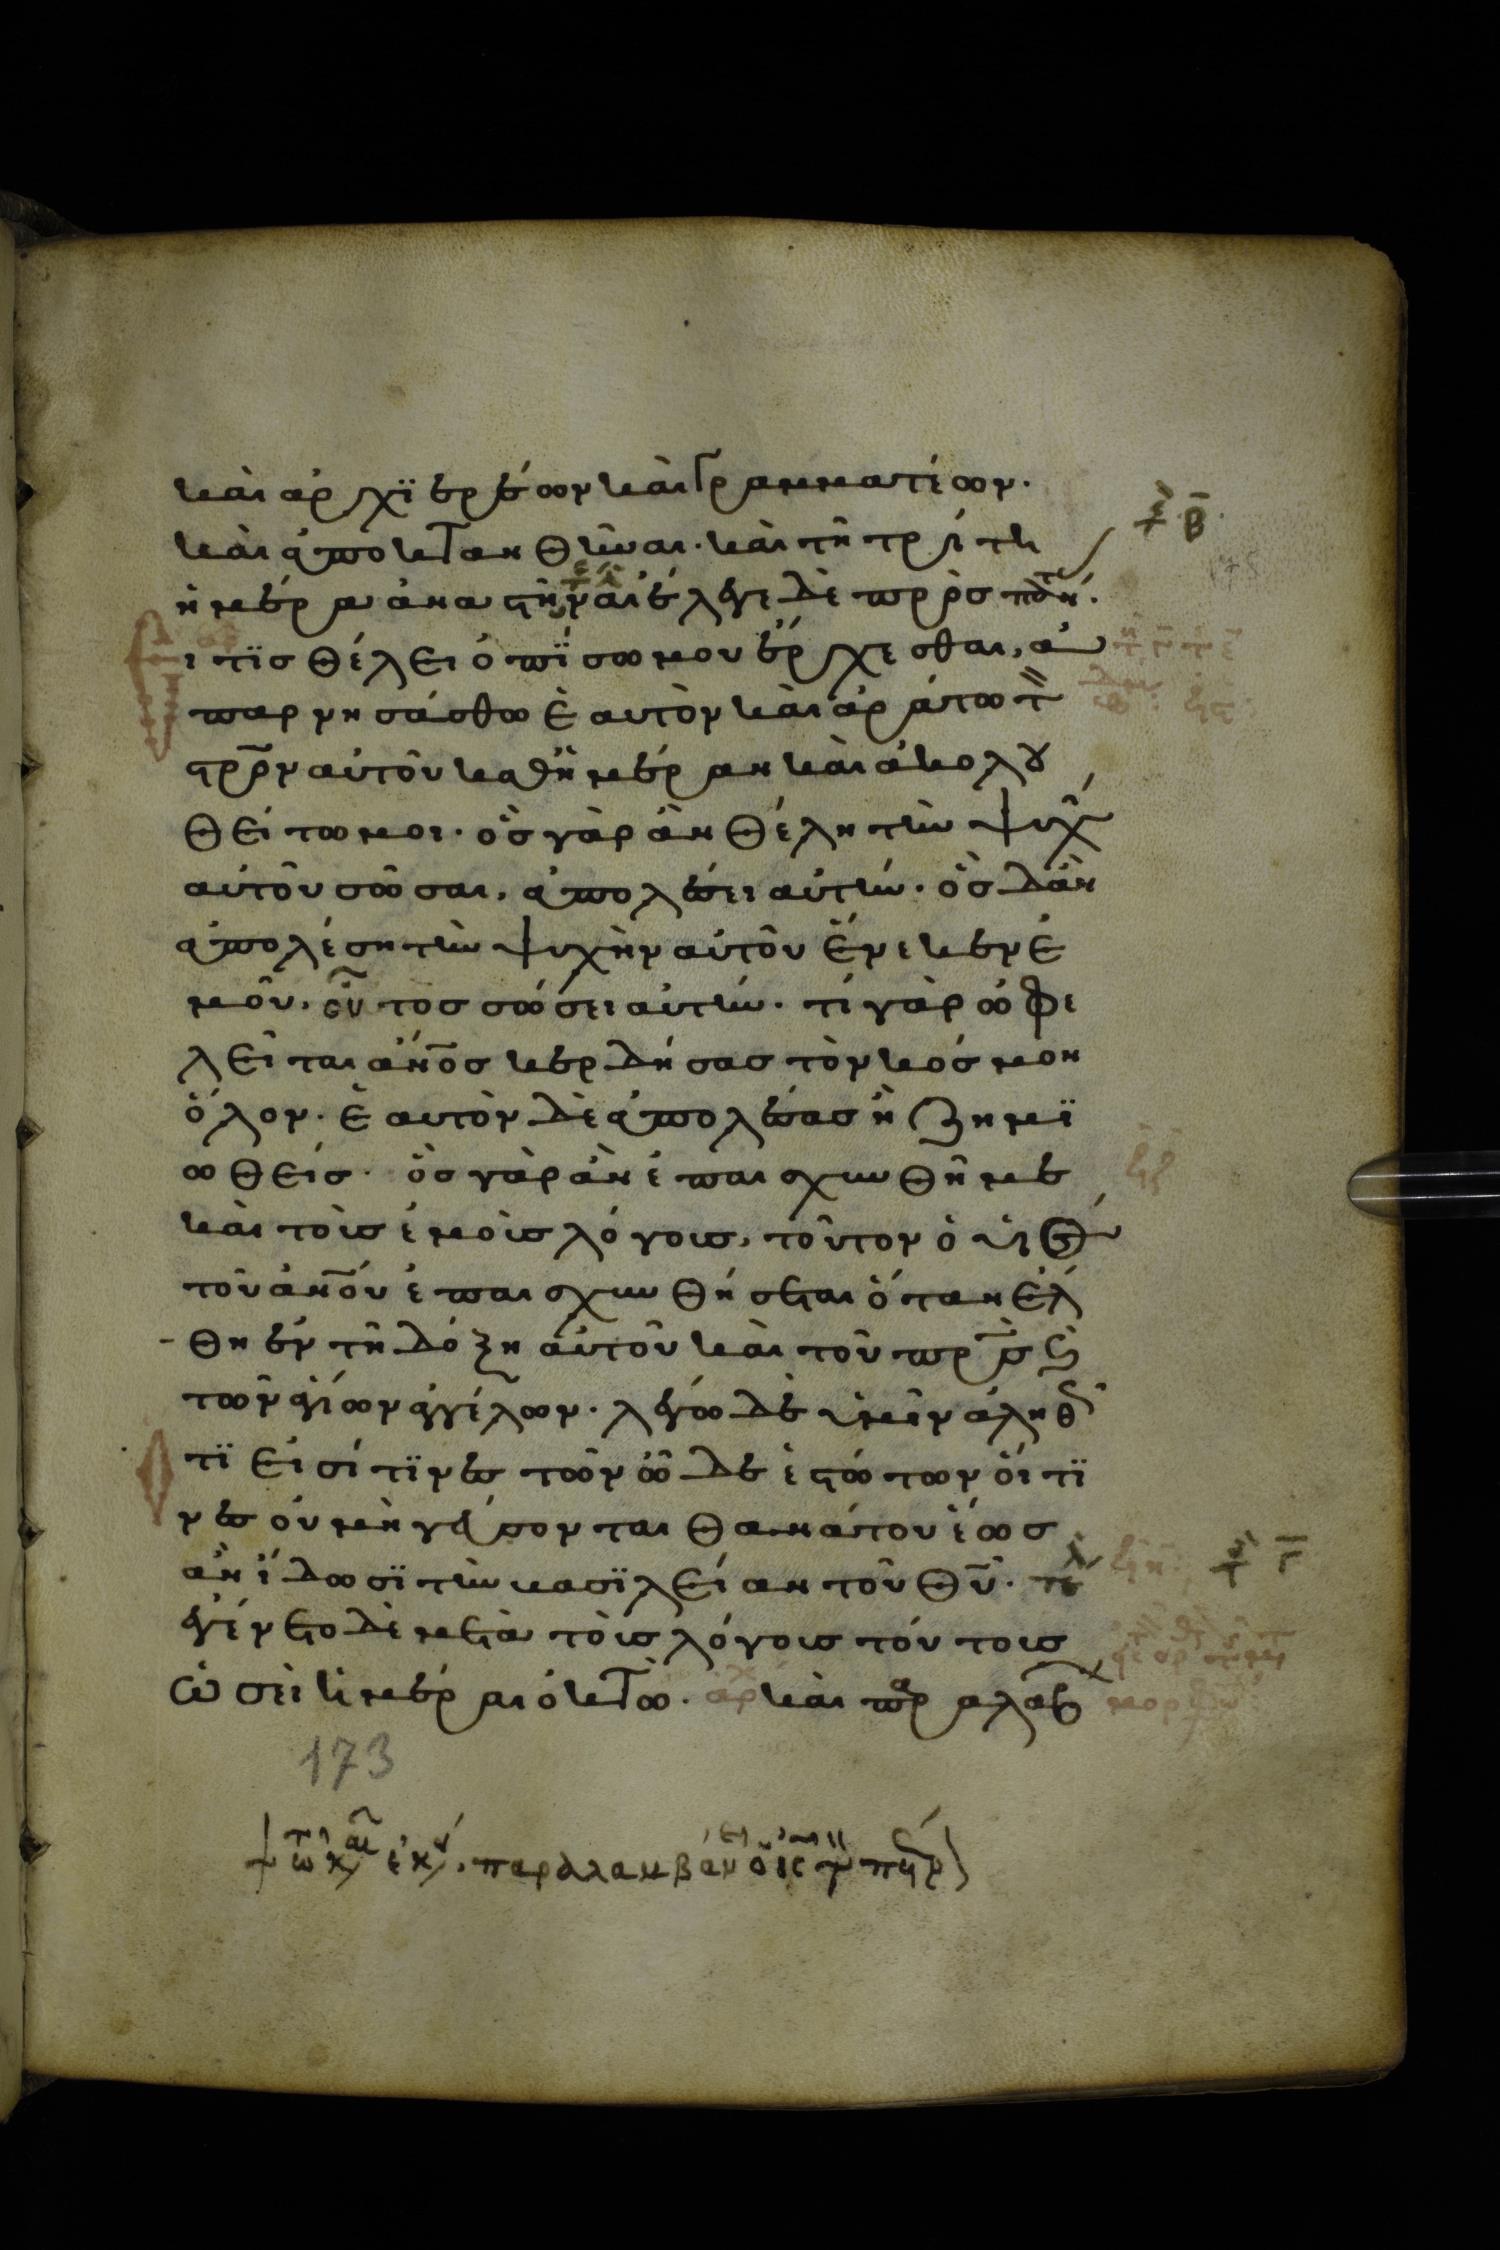 καὶ ἀρχϊερέων καὶ γραμματέων.
καὶ ἀποκτανθῆναι· καὶ τῆ τρίτη
ἡμέρα ἀναστῆναι ἔλεγε δὲ πρὸς πάντ·
εἴ τϊς θέλει ὀπΐσω μου ἔρχεσθαι, ἀ
παρνησάσθω ἑαυτὸν καὶ ἀράτω τ
στρον αὐτοῦ καθ ἡμέραν καὶ ἀκολου
θείτω μοι· ὃς γὰρ ἂν θέλη τὴν ψυχ
αὐτοῦ σῶσαι, ἀπολέσει αὐτήν· ὃς δ ἂν
ἀπολέση τὴν ψυχὴν αὐτοῦ ἕνεκεν ἐ
μοῦ, οὗτος σώσει αὐτήν· τί γὰρ ὠφε
λεῖται ἄνος κερδήσας τὸν κόσμον
ὅλον· ἑαυτὸν δὲ ἀπολέσας ἢ ζημϊ
ωθείς· ὃς γὰρ ἂν ἐπαισχυνθῆ με
καὶ τοὺς ἐμοὺς λόγους, τοῦτον ὁ υἱὸς
τοῦ ἀνου ἐπαισχυνθήσεται ὅταν ἔλ
θη ἐν τῆ δόξη αὐτοῦ καὶ τοῦ πρς καὶ
τῶν ἁγίων ἀγγέλων· λέγω δὲ ὑμῖν ἀληθ
τϊ εἰσί τϊνες τῶν ὧδε ἑστώτων οἵ τϊ
νες οὐ μὴ γεύσονται θανάτου ἕως
ἂν ἴδωσϊ τὴν βασϊλείαν τοῦ θυ· τε
ἐγένετο δὲ μετὰ τοὺς λόγους τούτους
ὡσεὶ ἡμέραι ὀκτὼ· καὶ παραλαβ
173
τῶ καιρῶ ἐκείνω, παραλαμβάν ὁ ις τ πέτρ